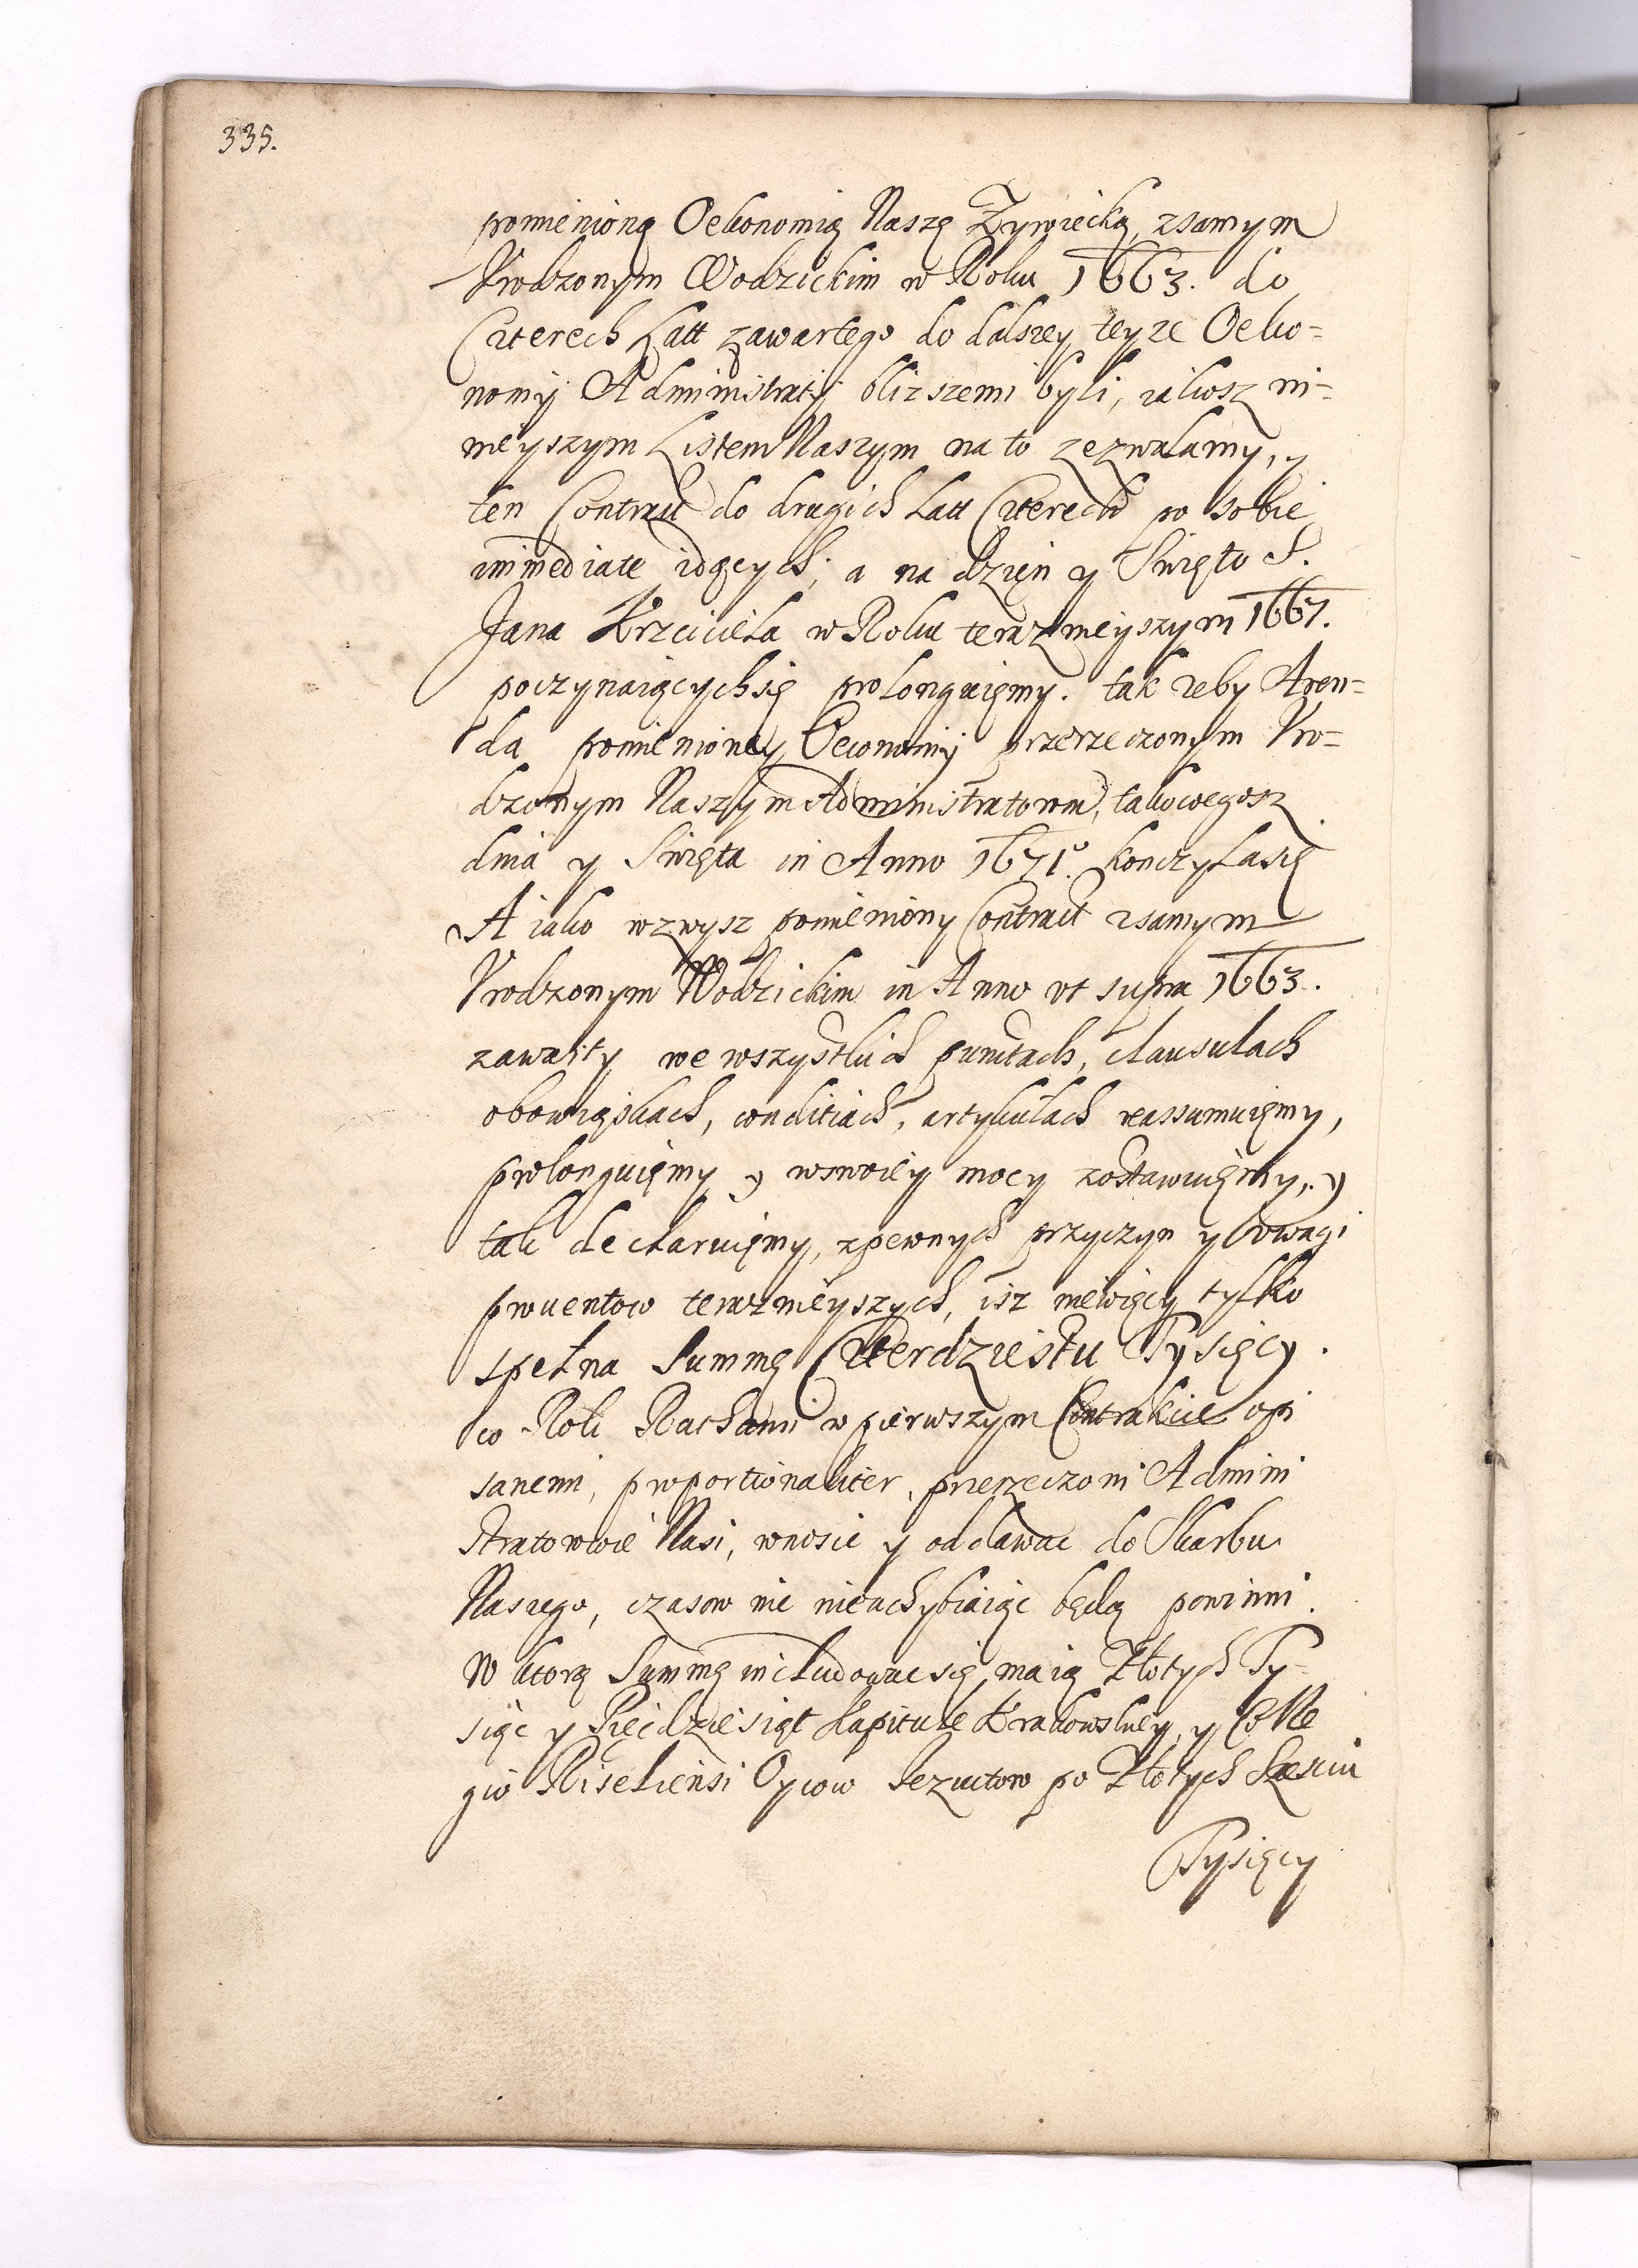 335.
pomienioną Oekonomią Naszę Zywiecką, zsamym
Vrodzonym Wodzickim w Roku 1663. do
Czterech Latt zawartego do dalszey teyze Oeko=
nomij Administratij blizszemi byli, iakosz ni=
nieyszym Listem Naszym na to zezwalamy, y
ten Contract do drugich Latt Czterech po sobie
immediate idących, a na dzien y Swięto S.
Jana Krzciciela w Roku teraznieyszym 1667.
poczynaiącychsię prolonguięmy. tak zeby Aren=
da pomienioney Oeconomij przerzeczonym Vro=
dzonym Naszym Administratorom, takowegosz
dnia y Swięta in Anno 1671º. konczyłasię
A iako wzwysz pomieniony Contract zsamym
Vrodzonym Wodzickim in Anno vt supra 1663.
zawarty we wszystkich punctach, clausulach
obowiąskach, conditiach, artykułach reassumuięmy,
prolonguięmy y wswoiey mocy zostawuięmy, y
tak declaruięmy, zpewnych przyczyn y vwagi
prouentow teraznieyszych, isz niewięcy tylko
spełna Summę Czterdziestu Tysięcy.
co Rok Rathami w pierwszym Contrakcie opi
sanemi, proportionaliter, przerzeczoni Admini
stratorowie Nasi, wnosic y oddawac do Skarbu
Naszego, czasow nie nieuchybiaiąc będą powinni.
W ktorą Summę includowac się maią Złotych Ty=
siąc y Pięcdziesiąt Kapitule Krakowskiey, y Colle
gio Riseliensi Oycow Jezuitow po Złotych Szesciu
Tysięcy